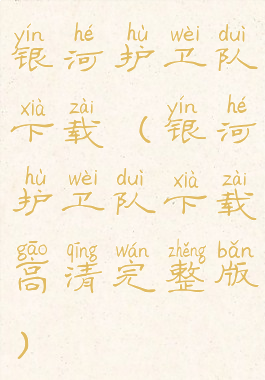 yín hé hù wèi duì
银河护卫队
xià zài yín hé
下载(银河
hù wèi duì xià zài
护卫队下载
gāo qīng wán zhěng bǎn
高清完整版
)